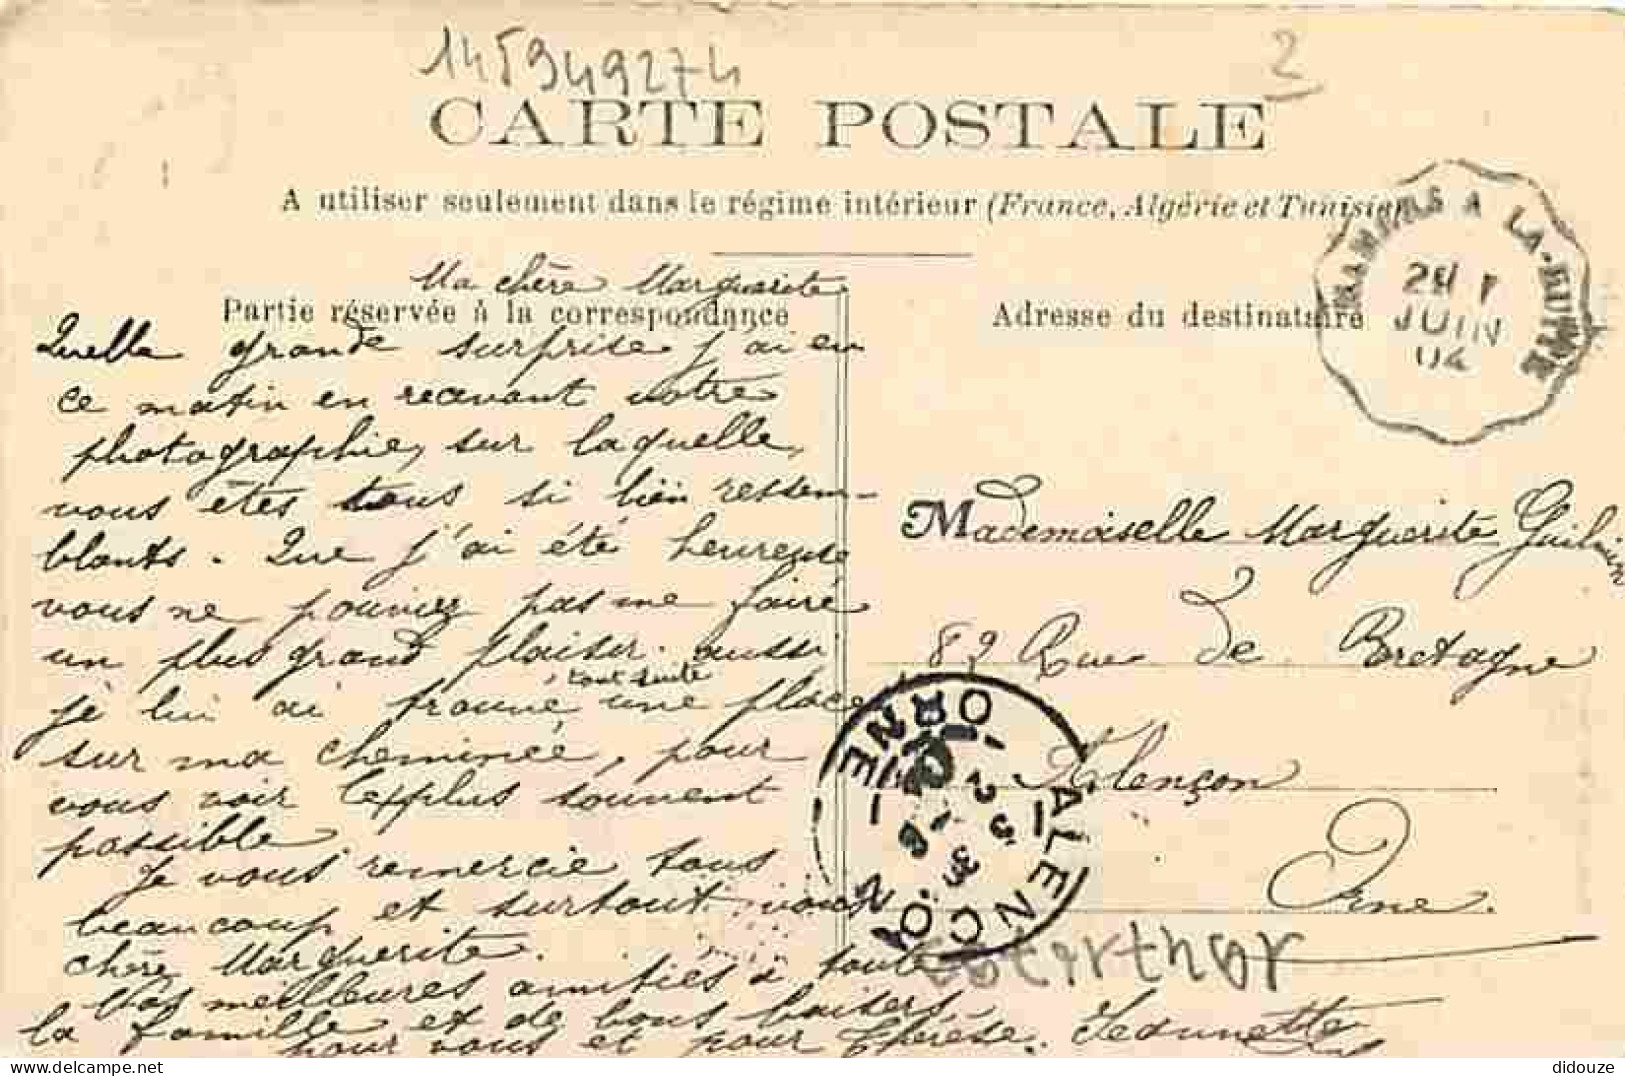 145949274
2
CARTE POSTALE
A utiliser seulement dans le régime intérieur (France, Algérie et Tunisie)
MAMERS A LA-HUTTE
JUIN
04
Partie réservée à la correspondance
Adresse du destinataire
Ma chère Marguerite
Quelle grande surprise j'ai eu
ce matin en recevant votre
photographie, sur laquelle,
vous êtes tous si bien ressem-
blants. Que j'ai été heureuse
vous ne pouviez pas me faire
un plus grand plaisir. aussi
je lui ai trouvé tout suite une place
sur ma cheminée, pour
vous voir le plus souvent
possible.
Je vous remercie tous
beaucoup et surtout vous
chère Marguerite.
Vos meilleures amitiés à toute
la famille et de bons baisers
pour vous et pour Thérèse. Jeannette
Mademoiselle Marguerite
82 Rue de Bretagne
Alençon
Orne.
ALENCON
ORNE
didouze